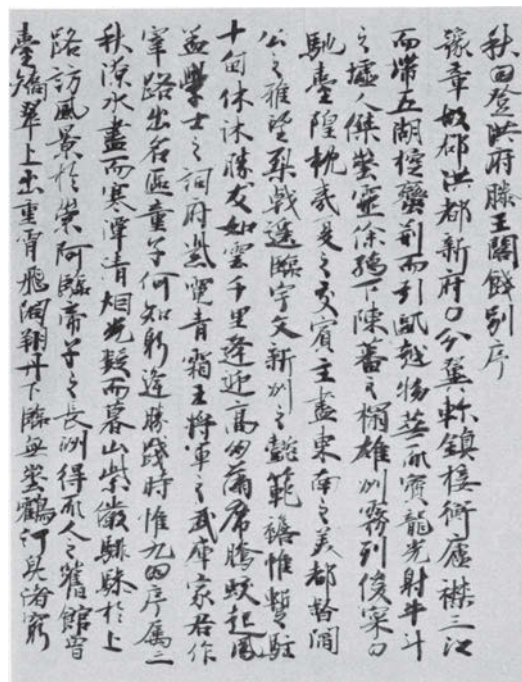 秋𡆠登洪府滕王閣餞別序
豫章故郡洪都新府〇分翼軫鎮接衡廬襟三江
而帶五湖控蠻荊而引甌越物華𠀑寶龍光射牛斗
之墟人傑埊靈徐孺下陳蕃之榻雄州霧列俊寀〇
馳臺隍枕夷夏之交賓主盡東南之美都督閻
公之雅望棨戟遙臨宇文新州之懿範襜帷暫駐
十旬休沐勝友如雲千里逢迎高朋滿席騰蛟起鳳
孟學士之詞府紫電青霜王將軍之武庫家君作
宰路出名區童子何知躬逢勝餞時惟九囝序屬三
秋潦水盡而寒潭清烟光凝而暮山紫儼驂騑於上
路訪風景於崇阿臨帝子之長洲得𠀑人之舊館層
臺矯翠上出重霄飛閣翔丹下臨無埊鶴汀鳧渚窮